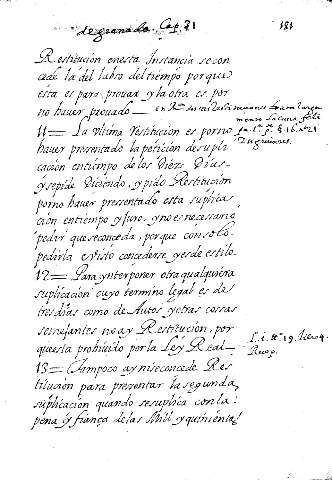 de granada. Cap. 21
181
Restitucion enesta Instancia secon
cede la del labso del tiempo porque
esta es para provar y la otra es por
no haver provado
11= La ultima restitucion es porno
haver presentado la peticion de supli
cacion entiempo de los Diez Dias
y sepide Diciendo, y pido Restitucion
porno haver presentado esta suplica
cion entiempo y juro. y no es necesario
pedir que seconceda, porque con solo
pedirla es visto concederse, y es de estilo.
12= Para ynterponer otra qualquiera
suplicacion cuyo termino legal es de
tres dias como de Autos, y otras cossas
semejantes no ay Restitucion, por
que esta prohivido por la Ley Real
L. 1. tt.º 19. libro 4
Recop.
13= Tampoco ay niseconcede Res
titucion para presentar la segunda
suplicacion quando sesuplica con la
pena y fiança de las Mill y quinientas